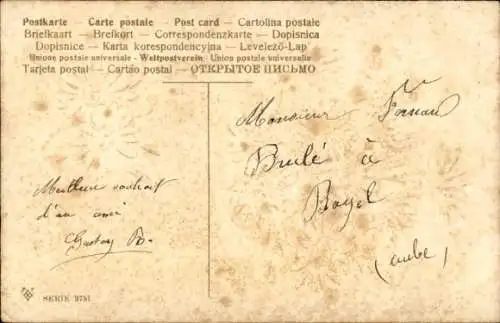 Postkarte — Carte postale — Post card — Cartolina postale
Briefkaart — Brefkort — Correspondenzkarte — Dopisnica
Dopisnice — Karta korespondencyjna — Levelező-Lap
Unione postale universale — Weltpostverein — Union postale universelle
Tarjeta postal — Cartão postal — ОТКРЫТОЕ ПИСЬМО
Monsieur Fernand
Brulé à
Bayel
(aube)
Meilleur souhait
d'un ami
Gustay B.
SERIE 2751